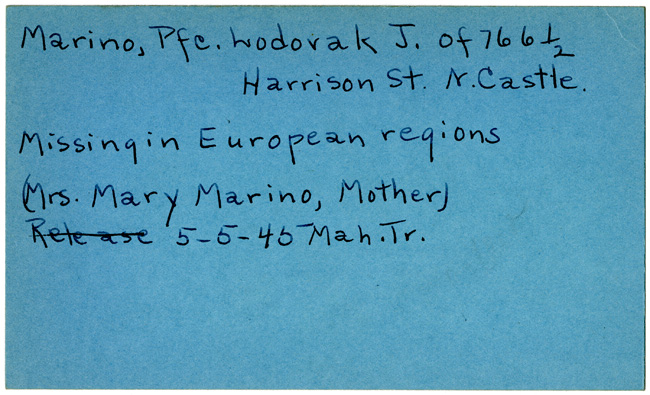 Marino, Pfc. Lodovak J. of 766 1/2
Harrison St. N. Castle.
Missing in European regions
(Mrs. Mary Marino, Mother)
Release 5-5-45 Mah. Tr.